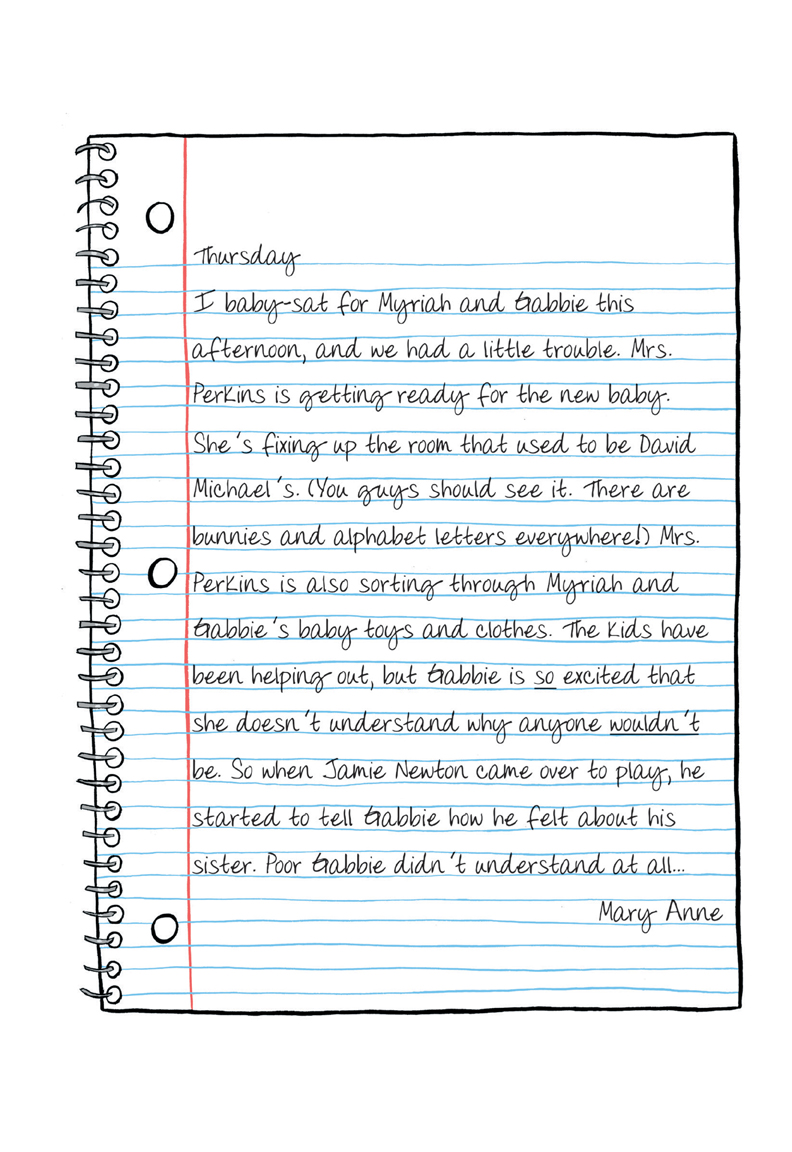 Thursday
I baby-sat for Myriah and Gabbie this
afternoon, and we had a little trouble. Mrs.
Perkins is getting ready for the new baby.
She's fixing up the room that used to be David
Michael's. (You guys should see it. There are
bunnies and alphabet letters everywhere!) Mrs.
Perkins is also sorting through Myriah and
Gabbie's baby toys and clothes. The kids have
been helping out, but Gabbie is so excited that
she doesn't understand why anyone wouldn't
be. So when Jamie Newton came over to play, he
started to tell Gabbie how he felt about his
sister. Poor Gabbie didn't understand at all...
Mary Anne